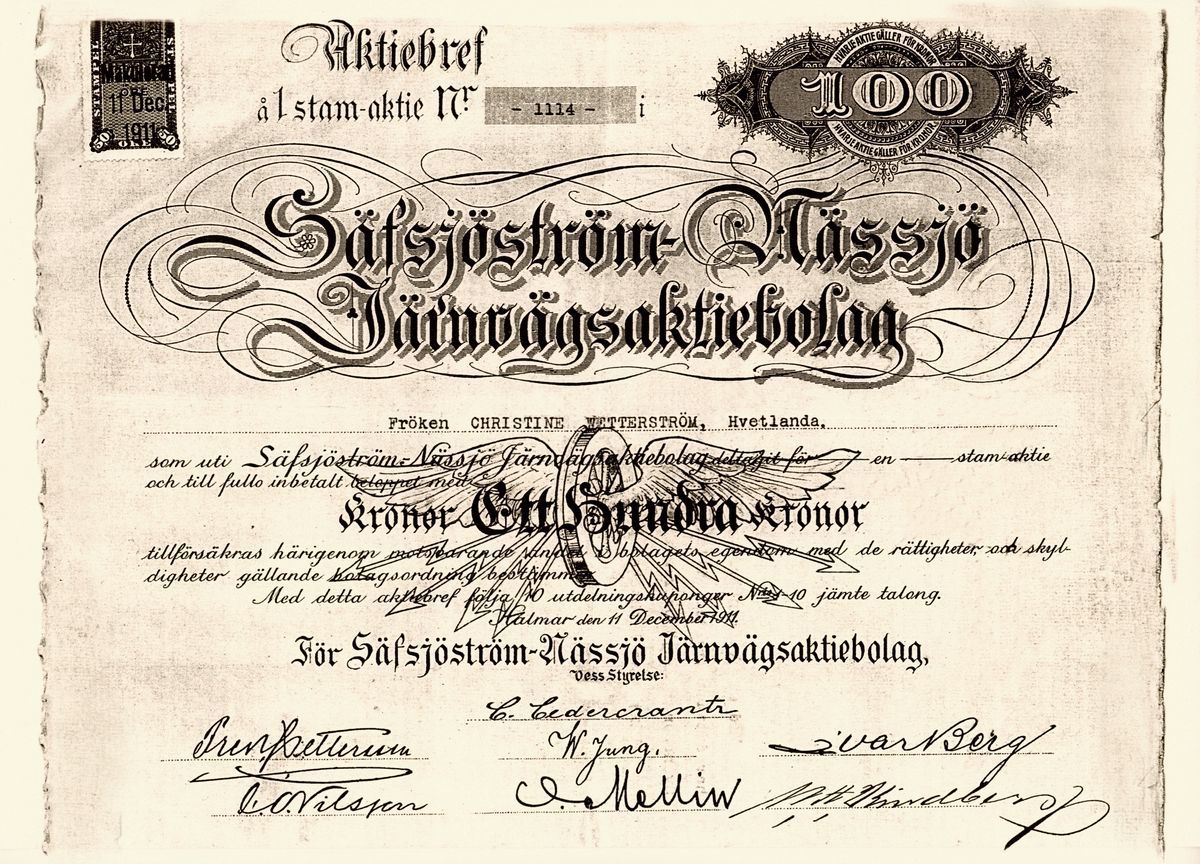 STÄMPEL
Makulerad
11 Dec.
1911
50 50
Aktiebref
å 1 stam-aktie Nr - 1114 - i
HVARJE AKTIE GÄLLER FÖR KRONOR
100
HVARJE AKTIE GÄLLER FÖR KRONOR
Säfsjöström-Nässjö
Järnvägsaktiebolag
Fröken CHRISTINE WETTERSTRÖM, Hvetlanda,
som uti Säfsjöström-Nässjö Järnvägsaktiebolag deltagit för en stam-aktie
och till fullo inbetalt beloppet med
Kronor Ett Hundra Kronor
tillförsäkras härigenom motsvarande andel i bolagets egendom med de rättigheter och skyl-
digheter gällande bolagsordning bestämmer.
Med detta aktiebref följa 10 utdelningskuponger Nris 1-10 jämte talong.
Kalmar den 11 December 1911.
För Säfsjöström-Nässjö Järnvägsaktiebolag,
Dess Styrelse:
C. Cedercrantz
W. Jung.
Ivar Berg
C. O. Nilsson
O. Mellin